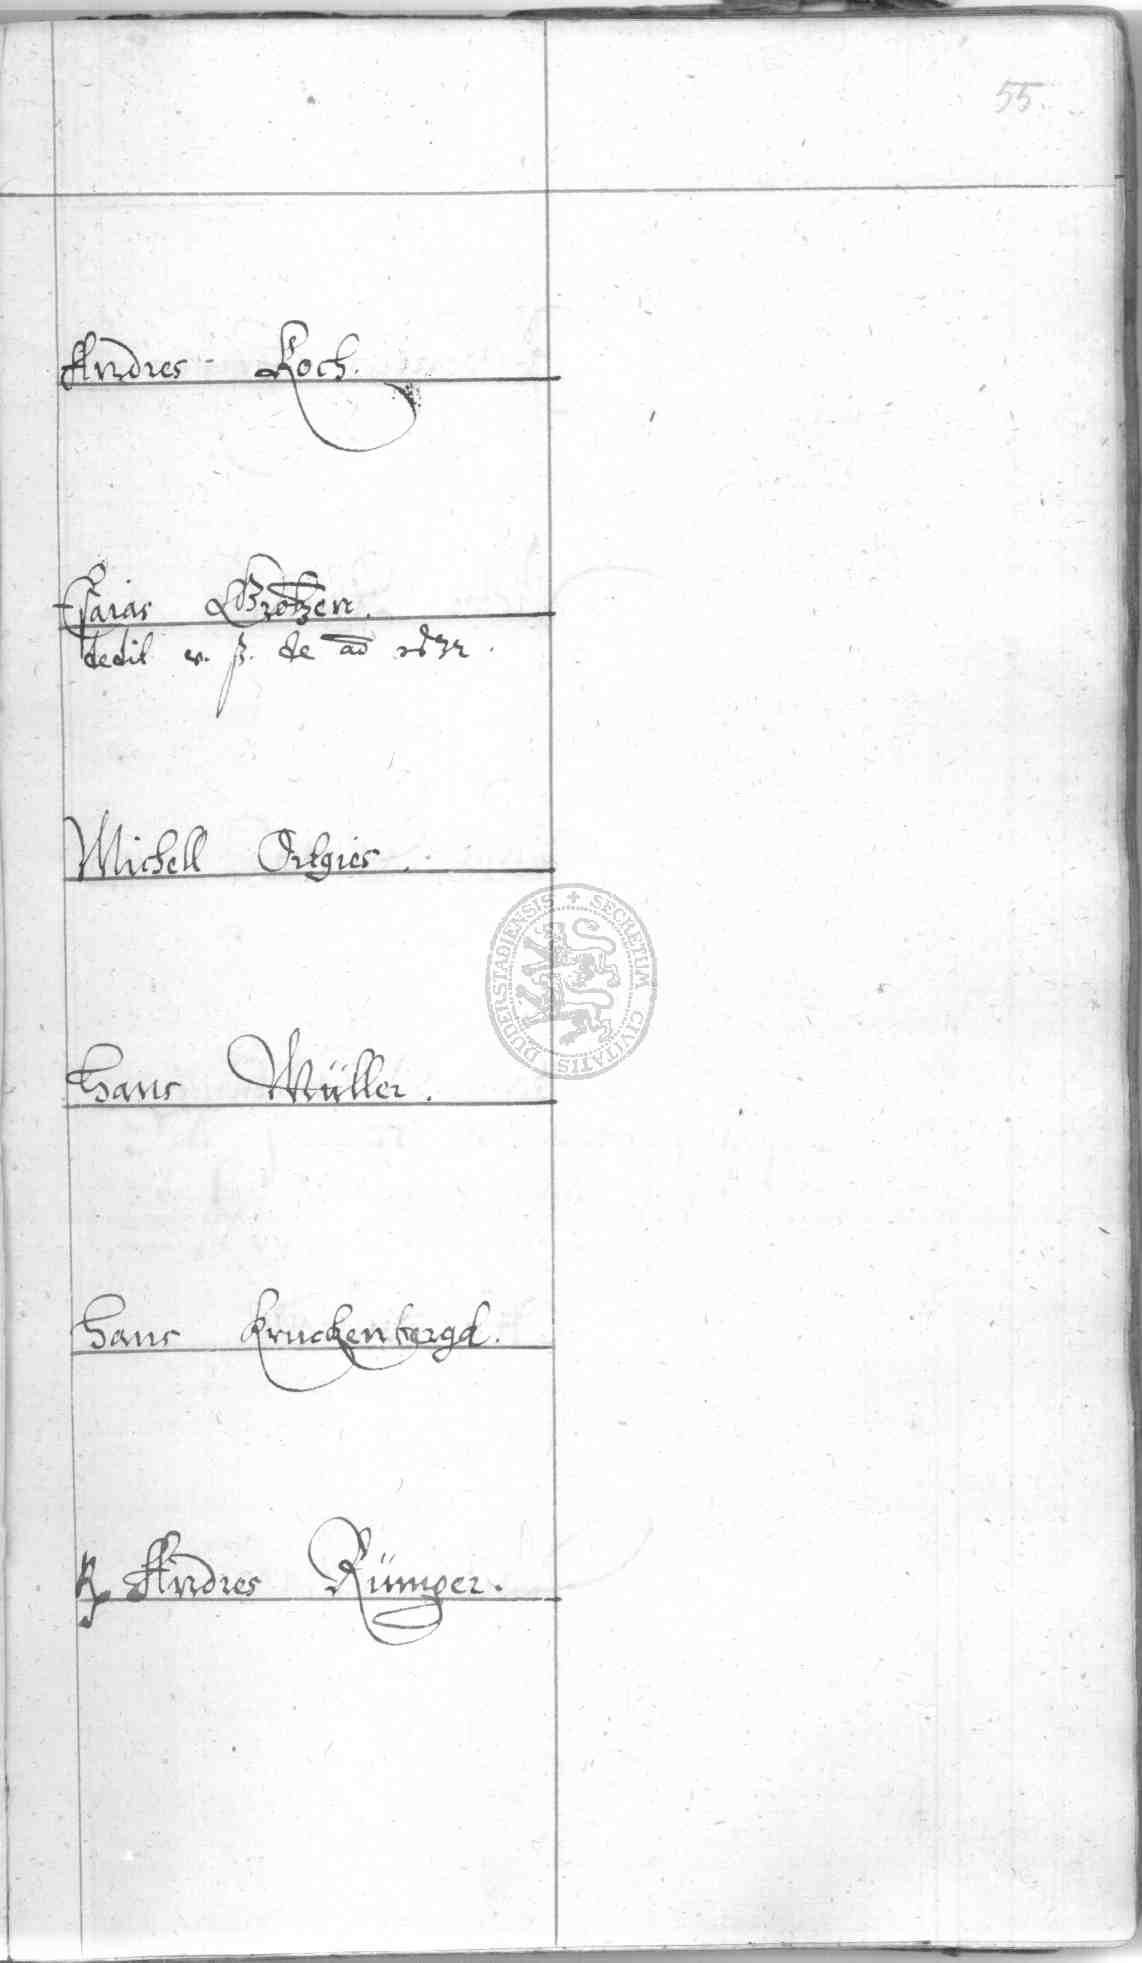 55.
Andres Koch.
Esaias Grotzen.
dedit v. ß. de aō 1632.
Michell Ortgies.
Hans Müller.
Hans Kruckenbergk.
Andres Rümper.
SECRETUM CIVITATIS DUDERSTADIENSIS